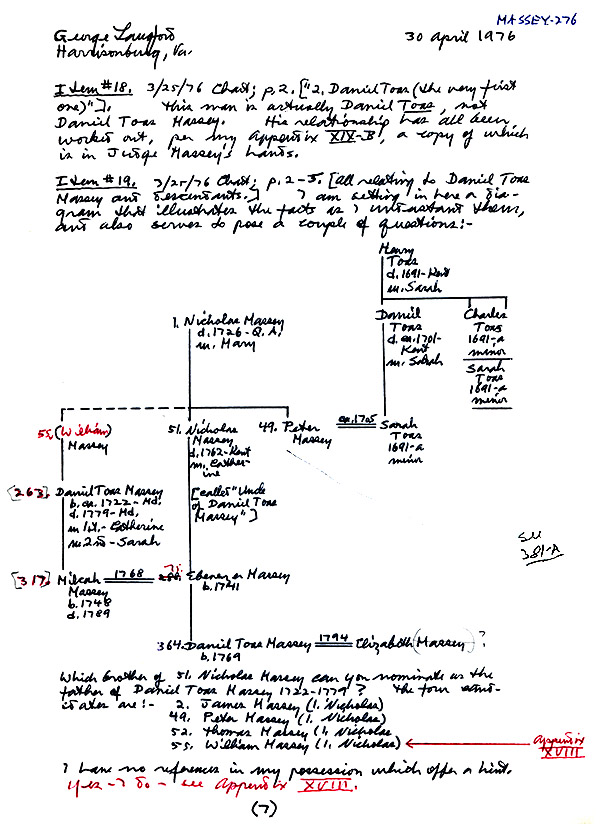 MASSEY-276
George Langford
Harrisonburg, Va.
30 April 1976
Item #18. 3/25/76 Chart; p.2. ["2. Daniel Toas (the very first
one)"]. This man is actually Daniel Toas, not
Daniel Toas Massey. His relationship has all been
worked out, per my Appendix XIX-B, a copy of which
is in Judge Massey's hands.
Item #19. 3/25/76 Chart; p.2-5. [all relating to Daniel Toas
Massey and descendants.] I am setting in here a dia-
gram that illustrates the facts as I understand them,
and also serves to pose a couple of questions:-
Henry
Toas
d. 1691-Kent
m. Sarah
1. Nicholas Massey
d. 1726-Q.A.
m. Mary
Daniel
Toas
d. ca. 1701-
Kent
m. Sarah
Charles
Toas
1691-a
minor
Sarah
Toas
1691-a
minor
55. (William)
Massey
51. Nicholas
Massey
d. 1762-Kent
m. Cather-
ine
49. Peter
Massey
ca. 1705
Sarah
Toas
1691-a
minor
[263]. Daniel Toas Massey
b. ca. 1722-Md.
d. 1779-Md.
m 1st.- Catherine
m. 2nd - Sarah
[called "Uncle
of Daniel Toas
Massey"]
See
381-A
[317]. Milcah
Massey
b. 1748
d. 1789
1768
Ebenezer Massey
b. 1741
364. Daniel Toas Massey
b. 1769
1794
Elizabeth (Massey) ?
Which brother of 51. Nicholas Massey can you nominate as the
father of Daniel Toas Massey 1722-1779? The four candi-
dates are:- 2. James Massey (1. Nicholas)
49. Peter Massey (1. Nicholas)
52. Thomas Massey (1. Nicholas)
55. William Massey (1. Nicholas)
Appendix
XVIII
I have no references in my possession which offer a hint.
Yes - I do - see Appendix XVIII.
(7)